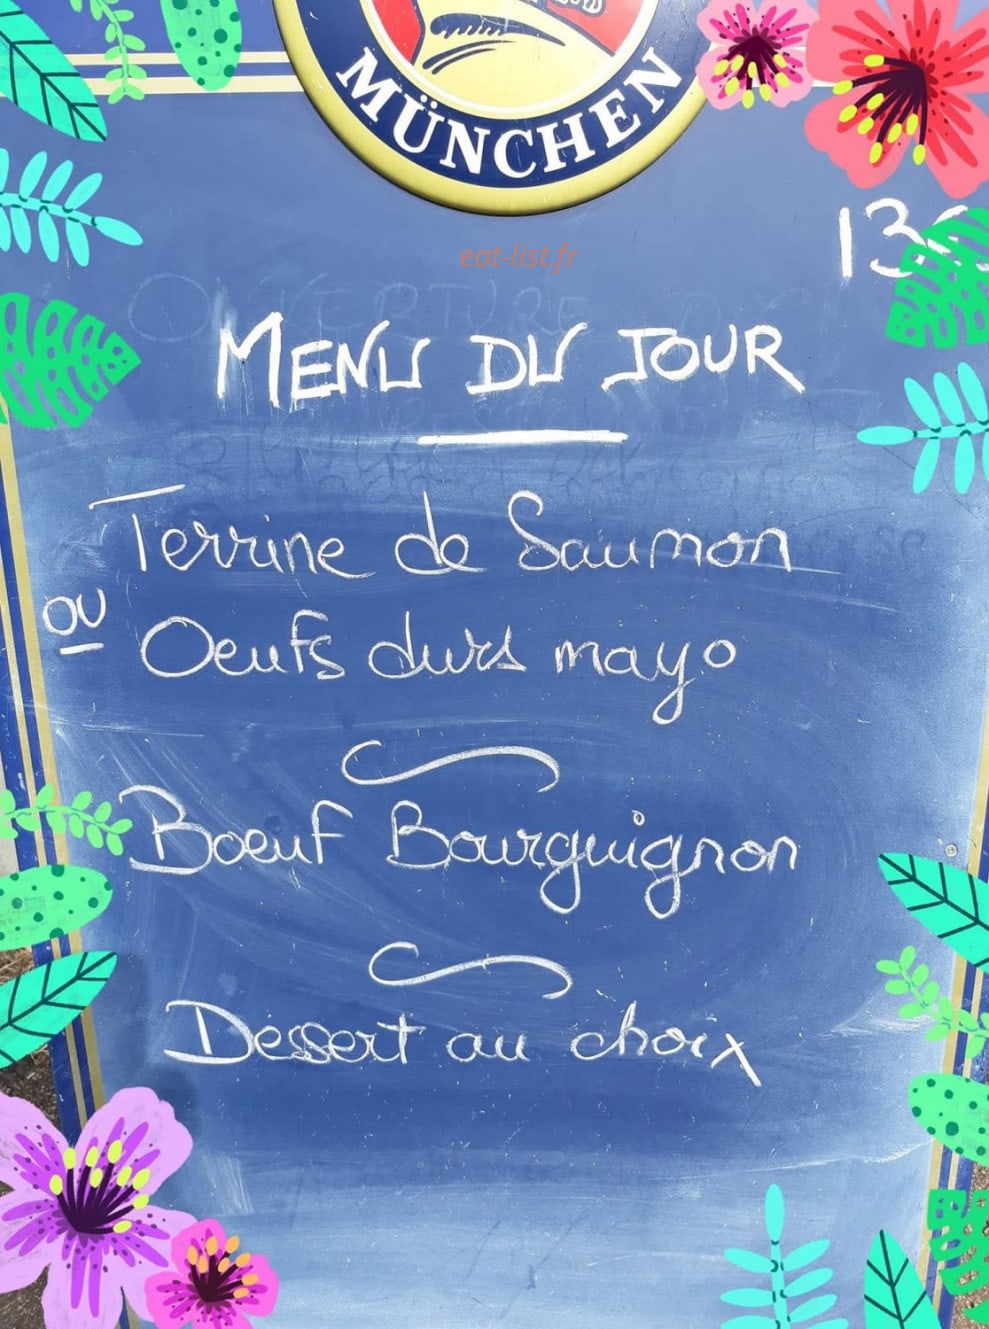 MÜNCHEN
13
eat-list.fr
MENU DU JOUR
Terrine de Saumon
OU
Oeufs durs mayo
Boeuf Bourguignon
Dessert au choix